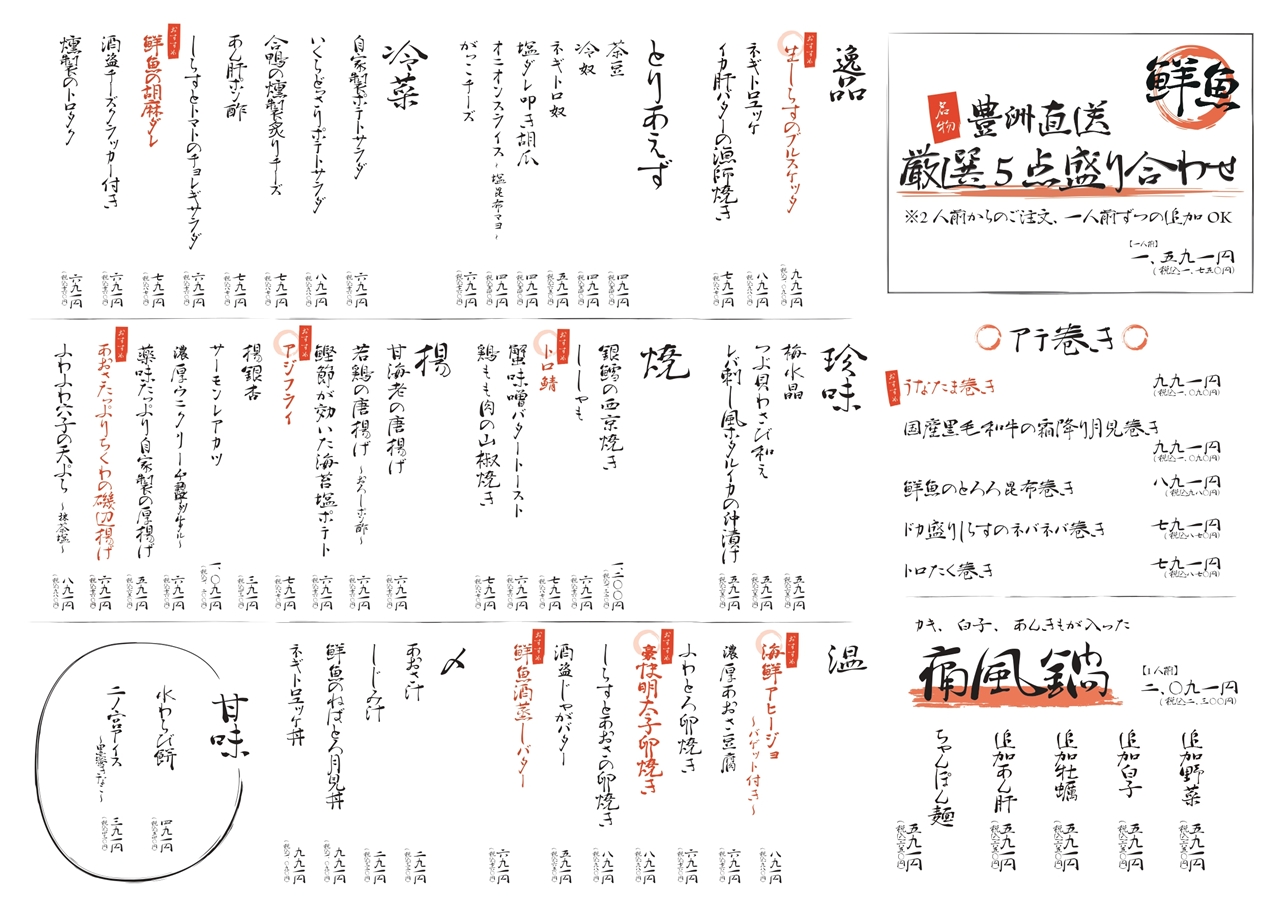 鮮魚
名物
豊洲直送
厳選5点盛り合わせ
※2人前からのご注文、一人前ずつの追加OK
【一人前】
一、五九一円
(税込一、七五〇円)
アテ巻き
おすすめ
うなたま巻き 九九一円
(税込一、〇九〇円)
国産黒毛和牛の霜降り月見巻き
九九一円
(税込一、〇九〇円)
鮮魚のとろろ昆布巻き 八九一円
(税込九八〇円)
ドカ盛りしらすのネバネバ巻き 七九一円
(税込八七〇円)
トロたく巻き 七九一円
(税込八七〇円)
カキ、白子、あんきもが入った
痛風鍋
【1人前】
二、〇九一円
(税込二、三〇〇円)
追加野菜 五九一円
(税込六五〇円)
追加白子 五九一円
(税込六五〇円)
追加牡蠣 五九一円
(税込六五〇円)
追加あん肝 五九一円
(税込六五〇円)
ちゃんぽん麺 五九一円
(税込六五〇円)
逸品
おすすめ
生しらすのブルスケッタ 九九一円
ネギトロユッケ 八九一円
イカ肝バターの漁師焼き 七九一円
とりあえず
茶豆 四九一円
冷奴 四九一円
ネギトロ奴 五九一円
塩ダレ叩き胡瓜 四九一円
オニオンスライス~塩昆布マヨ~ 四九一円
がっこチーズ 四九一円
冷菜
自家製ポテトサラダ 六九一円
いくらどっさりポテトサラダ 八九一円
合鴨の燻製炙りチーズ 七九一円
あん肝ポン酢 七九一円
しらすとトマトのチョレギサラダ 六九一円
おすすめ
鮮魚の胡麻ダレ 七九一円
酒盗チーズクラッカー付き 六九一円
燻製のトロタク 六九一円
珍味
梅水晶 五九一円
つぶ貝わさび和え 五九一円
レバ刺し風ホタルイカの沖漬け 五九一円
焼
銀鱈の西京焼き 一、二〇〇円
ししゃも 六九一円
おすすめ
トロ鯖 七九一円
蟹味噌バタートースト 六九一円
鶏もも肉の山椒焼き 七九一円
揚
甘海老の唐揚げ 六九一円
若鶏の唐揚げ~おろしポン酢~ 七九一円
鰹節が効いた海苔塩ポテト 六九一円
おすすめ
アジフライ 七九一円
揚銀杏 三九一円
サーモンレアカツ 一、〇九一円
濃厚ウニクリーム 六九一円
薬味たっぷり自家製の厚揚げ 五九一円
おすすめ
あおさたっぷりちくわの磯辺揚げ 六九一円
ふわふわ穴子の天ぷら~抹茶塩~ 八九一円
温
おすすめ
海鮮アヒージョ~バゲット付き~ 八九一円
濃厚あおさ豆腐 六九一円
ふわとろ卵焼き 六九一円
おすすめ
豪快明太子卵焼き 八九一円
しらすとあおさの卵焼き 八九一円
酒盗じゃがバター 五九一円
おすすめ
鮮魚酒蒸しバター 六九一円
〆
あおさ汁 二九一円
しじみ汁 二九一円
鮮魚のねばとろ月見丼 九九一円
ネギトロユッケ丼 九九一円
甘味
水わらび餅 四九一円
二ノ宮アイス 三九一円